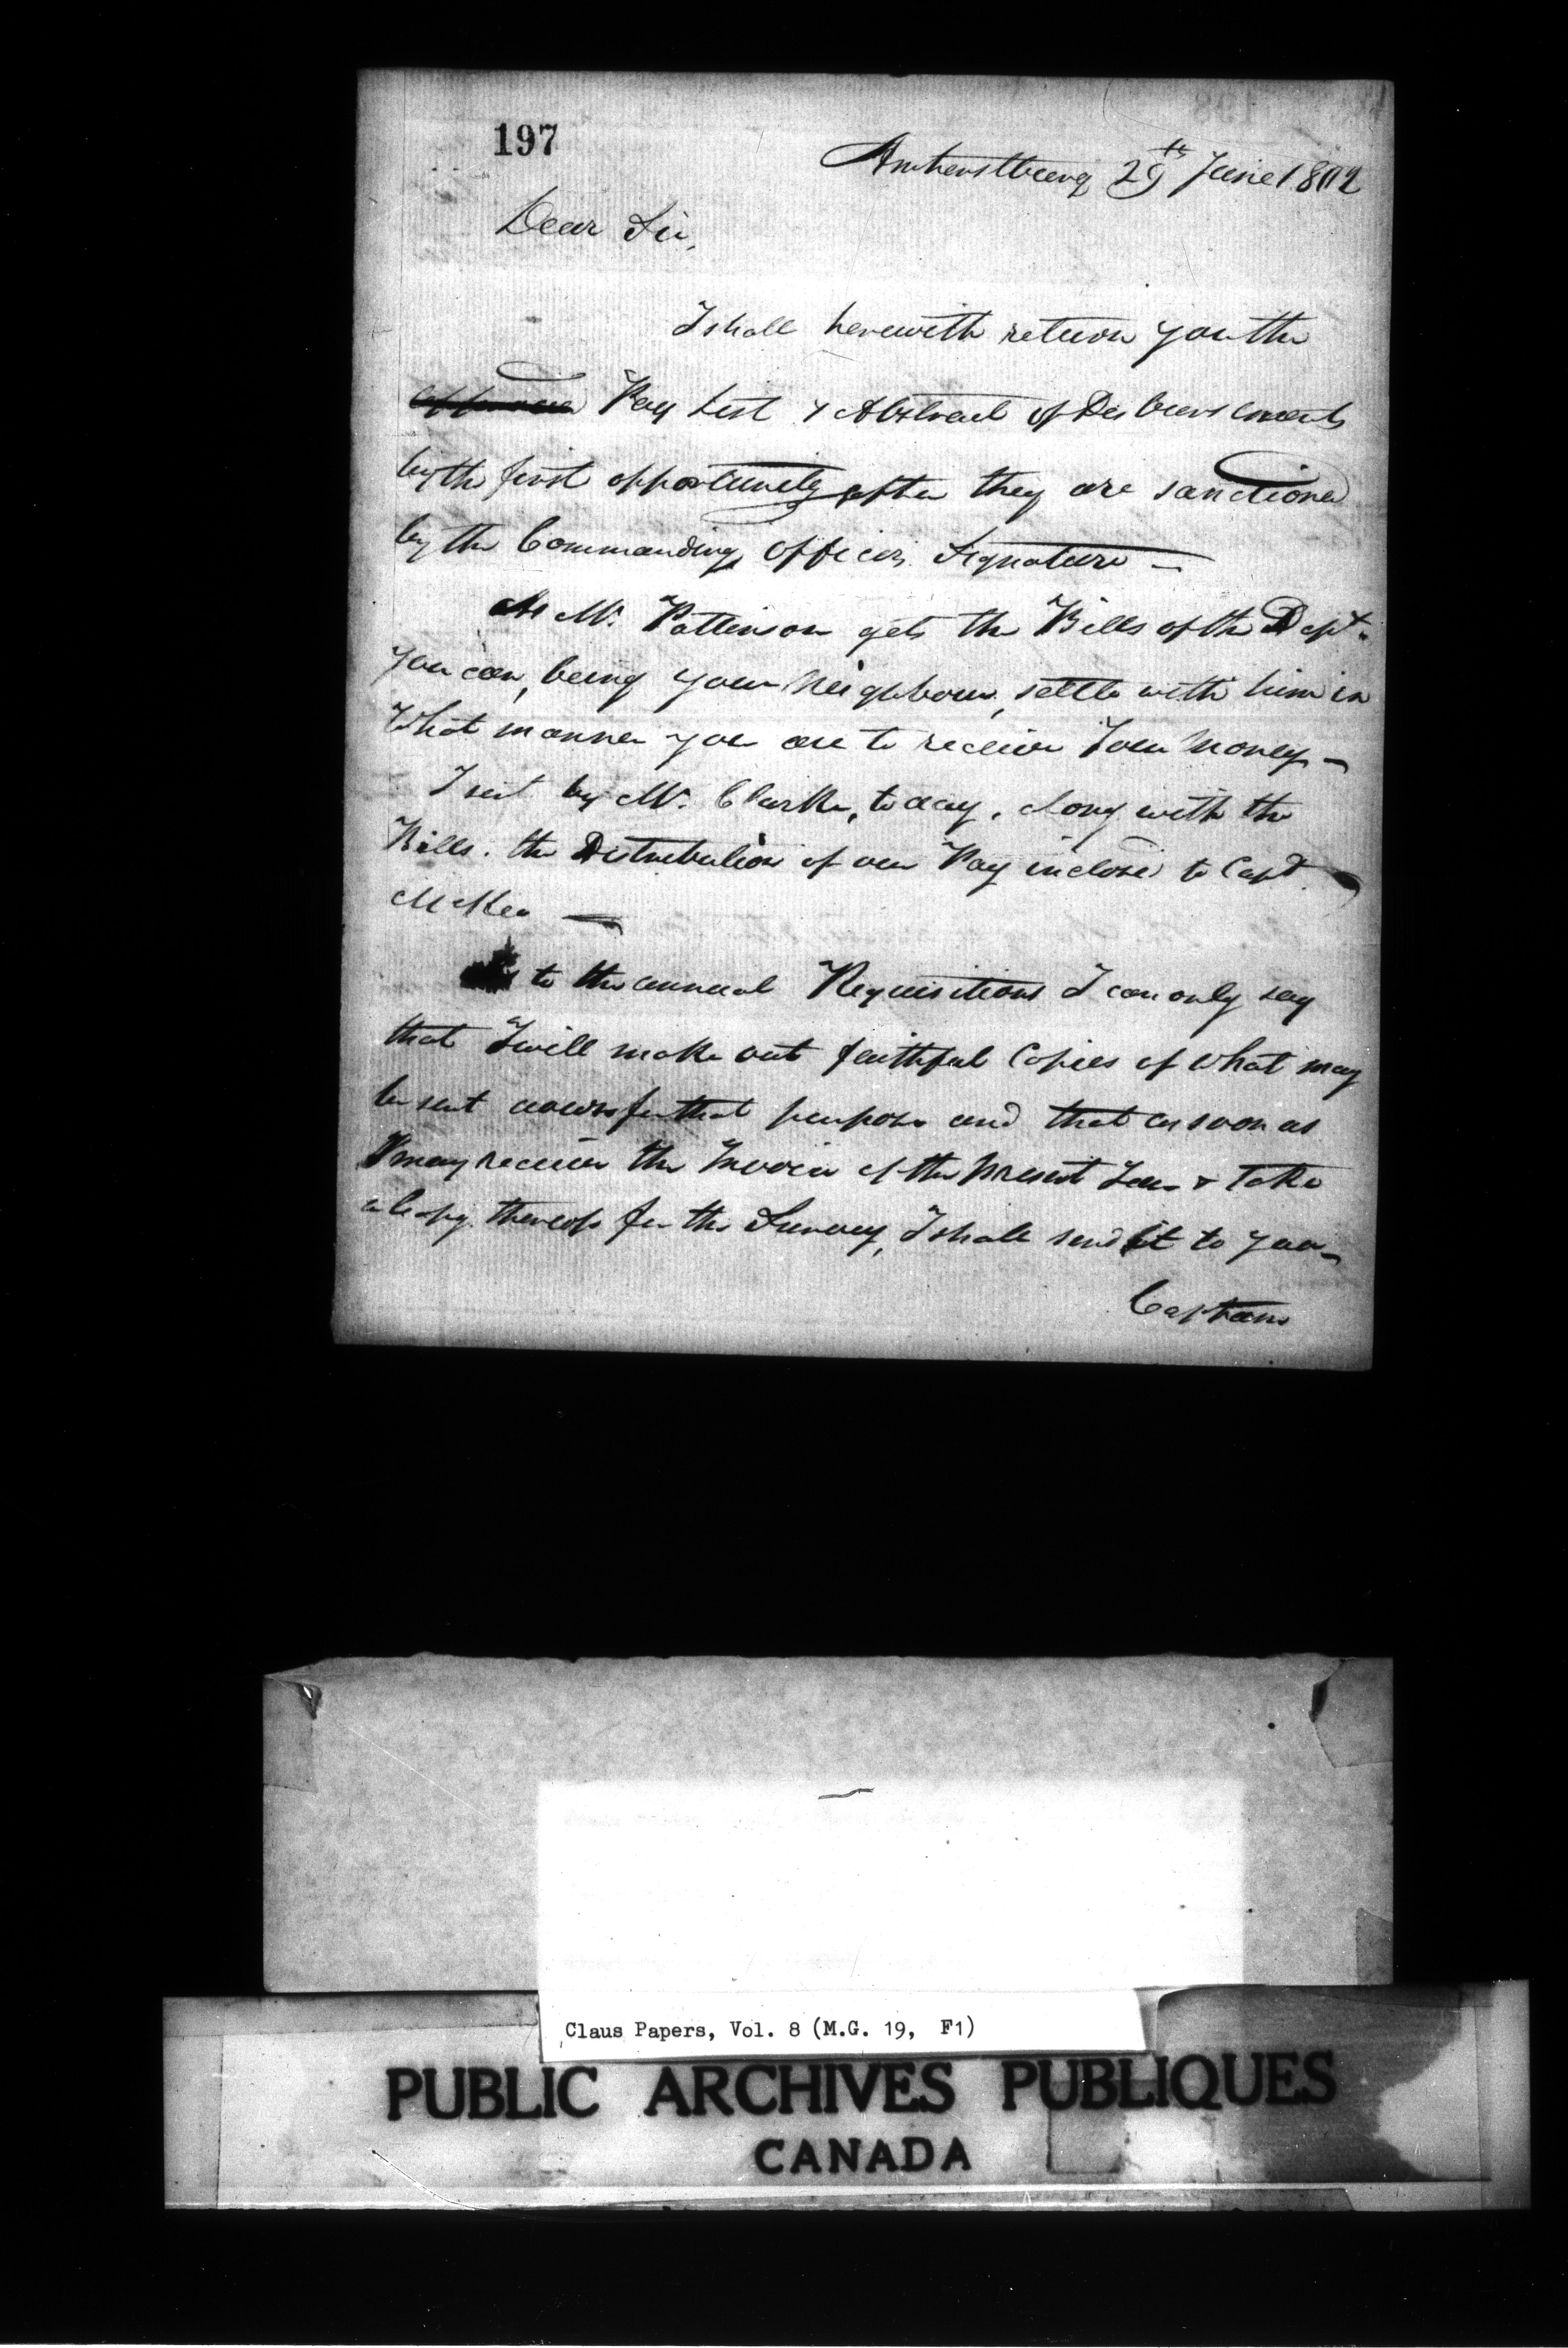 197
Amherstburg 29th June 1802
Dear Sir,
I shall herewith return you the
Pay List & Abstract of Disbursements
by the first opportunity after they are sanctioned
by the Commanding Officers Signature —
As Mr. Pattinson gets the Bills of the Dept.
you can, being your Neighbour, settle with him in
What manner you are to receive Your Money —
I sent by Mr. Clarke, today, along with the
Bills, the Distribution of our Pay inclosed to Capt.
McKee —
As to the annual Requisitions I can only say
that I will make out faithful Copies of what may
be sent down for that purpose and that as soon as
I may receive the Invoice of the present Year & take
a Copy thereof for the Survey, I shall send it to you —
Captain
Claus Papers, Vol. 8 (M.G. 19, F1)
PUBLIC ARCHIVES PUBLIQUES
CANADA